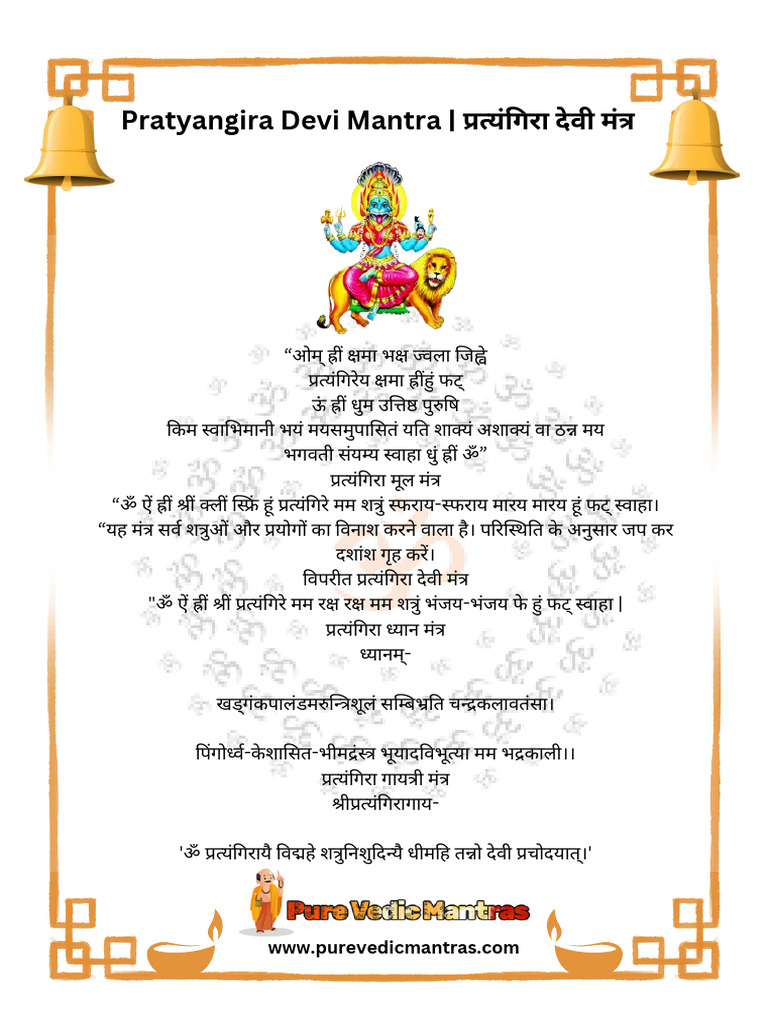 Pratyangira Devi Mantra | प्रत्यंगिरा देवी मंत्र
“ओम् ह्रीं क्षमा भक्ष ज्वला जिह्वे
प्रत्यंगिरेय क्षमा ह्रींहुं फट्
ऊं ह्रीं धुम उत्तिष्ठ पुरुषि
किम स्वाभिमानी भयं मयसमुपासितं यति शाक्यं अशाक्यं वा ठन्न मय
भगवती संयम्य स्वाहा धुं ह्रीं ॐ”
प्रत्यंगिरा मूल मंत्र
“ॐ ऐं ह्रीं श्रीं क्लीं स्फ्रिं हूं प्रत्यंगिरे मम शत्रुं स्फराय-स्फराय मारय मारय हूं फट् स्वाहा।
“यह मंत्र सर्व शत्रुओं और प्रयोगों का विनाश करने वाला है। परिस्थिति के अनुसार जप कर
दशांश गृह करें।
विपरीत प्रत्यंगिरा देवी मंत्र
"ॐ ऐं ह्रीं श्रीं प्रत्यंगिरे मम रक्ष रक्ष मम शत्रुं भंजय-भंजय फे हुं फट् स्वाहा |
प्रत्यंगिरा ध्यान मंत्र
ध्यानम्-
खड्गंकपालंडमरुन्त्रिशूलं सम्बिभ्रति चन्द्रकलावतंसा।
पिंगोर्ध्व-केशासित-भीमद्रंस्त्र भूयादविभूत्या मम भद्रकाली।।
प्रत्यंगिरा गायत्री मंत्र
श्रीप्रत्यंगिरागाय-
'ॐ प्रत्यंगिरायै विद्महे शत्रुनिशुदिन्यै धीमहि तन्नो देवी प्रचोदयात्।'
Pure Vedic Mantras
www.purevedicmantras.com